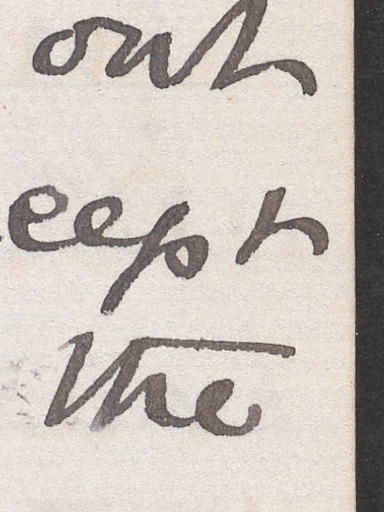 out
eept
the